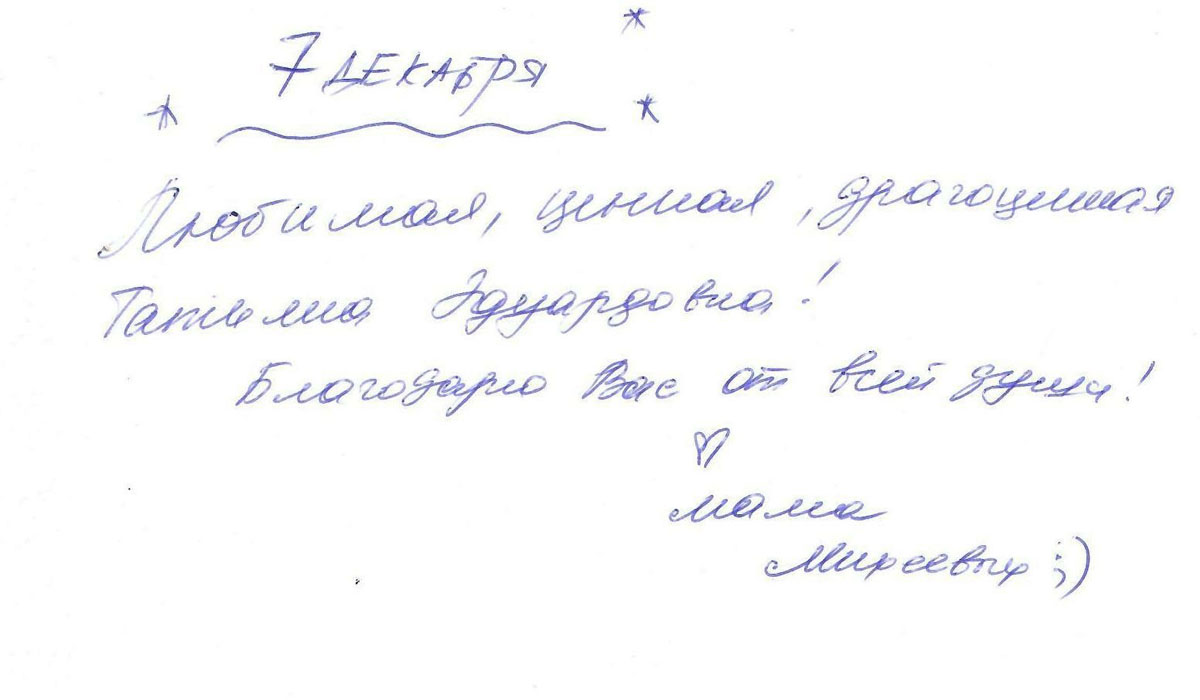 7 ДЕКАБРЯ
Любимая, ценная, драгоценная
Татьяна Эдуардовна!
Благодарю Вас от всей души!
мама
Михеевых ;)